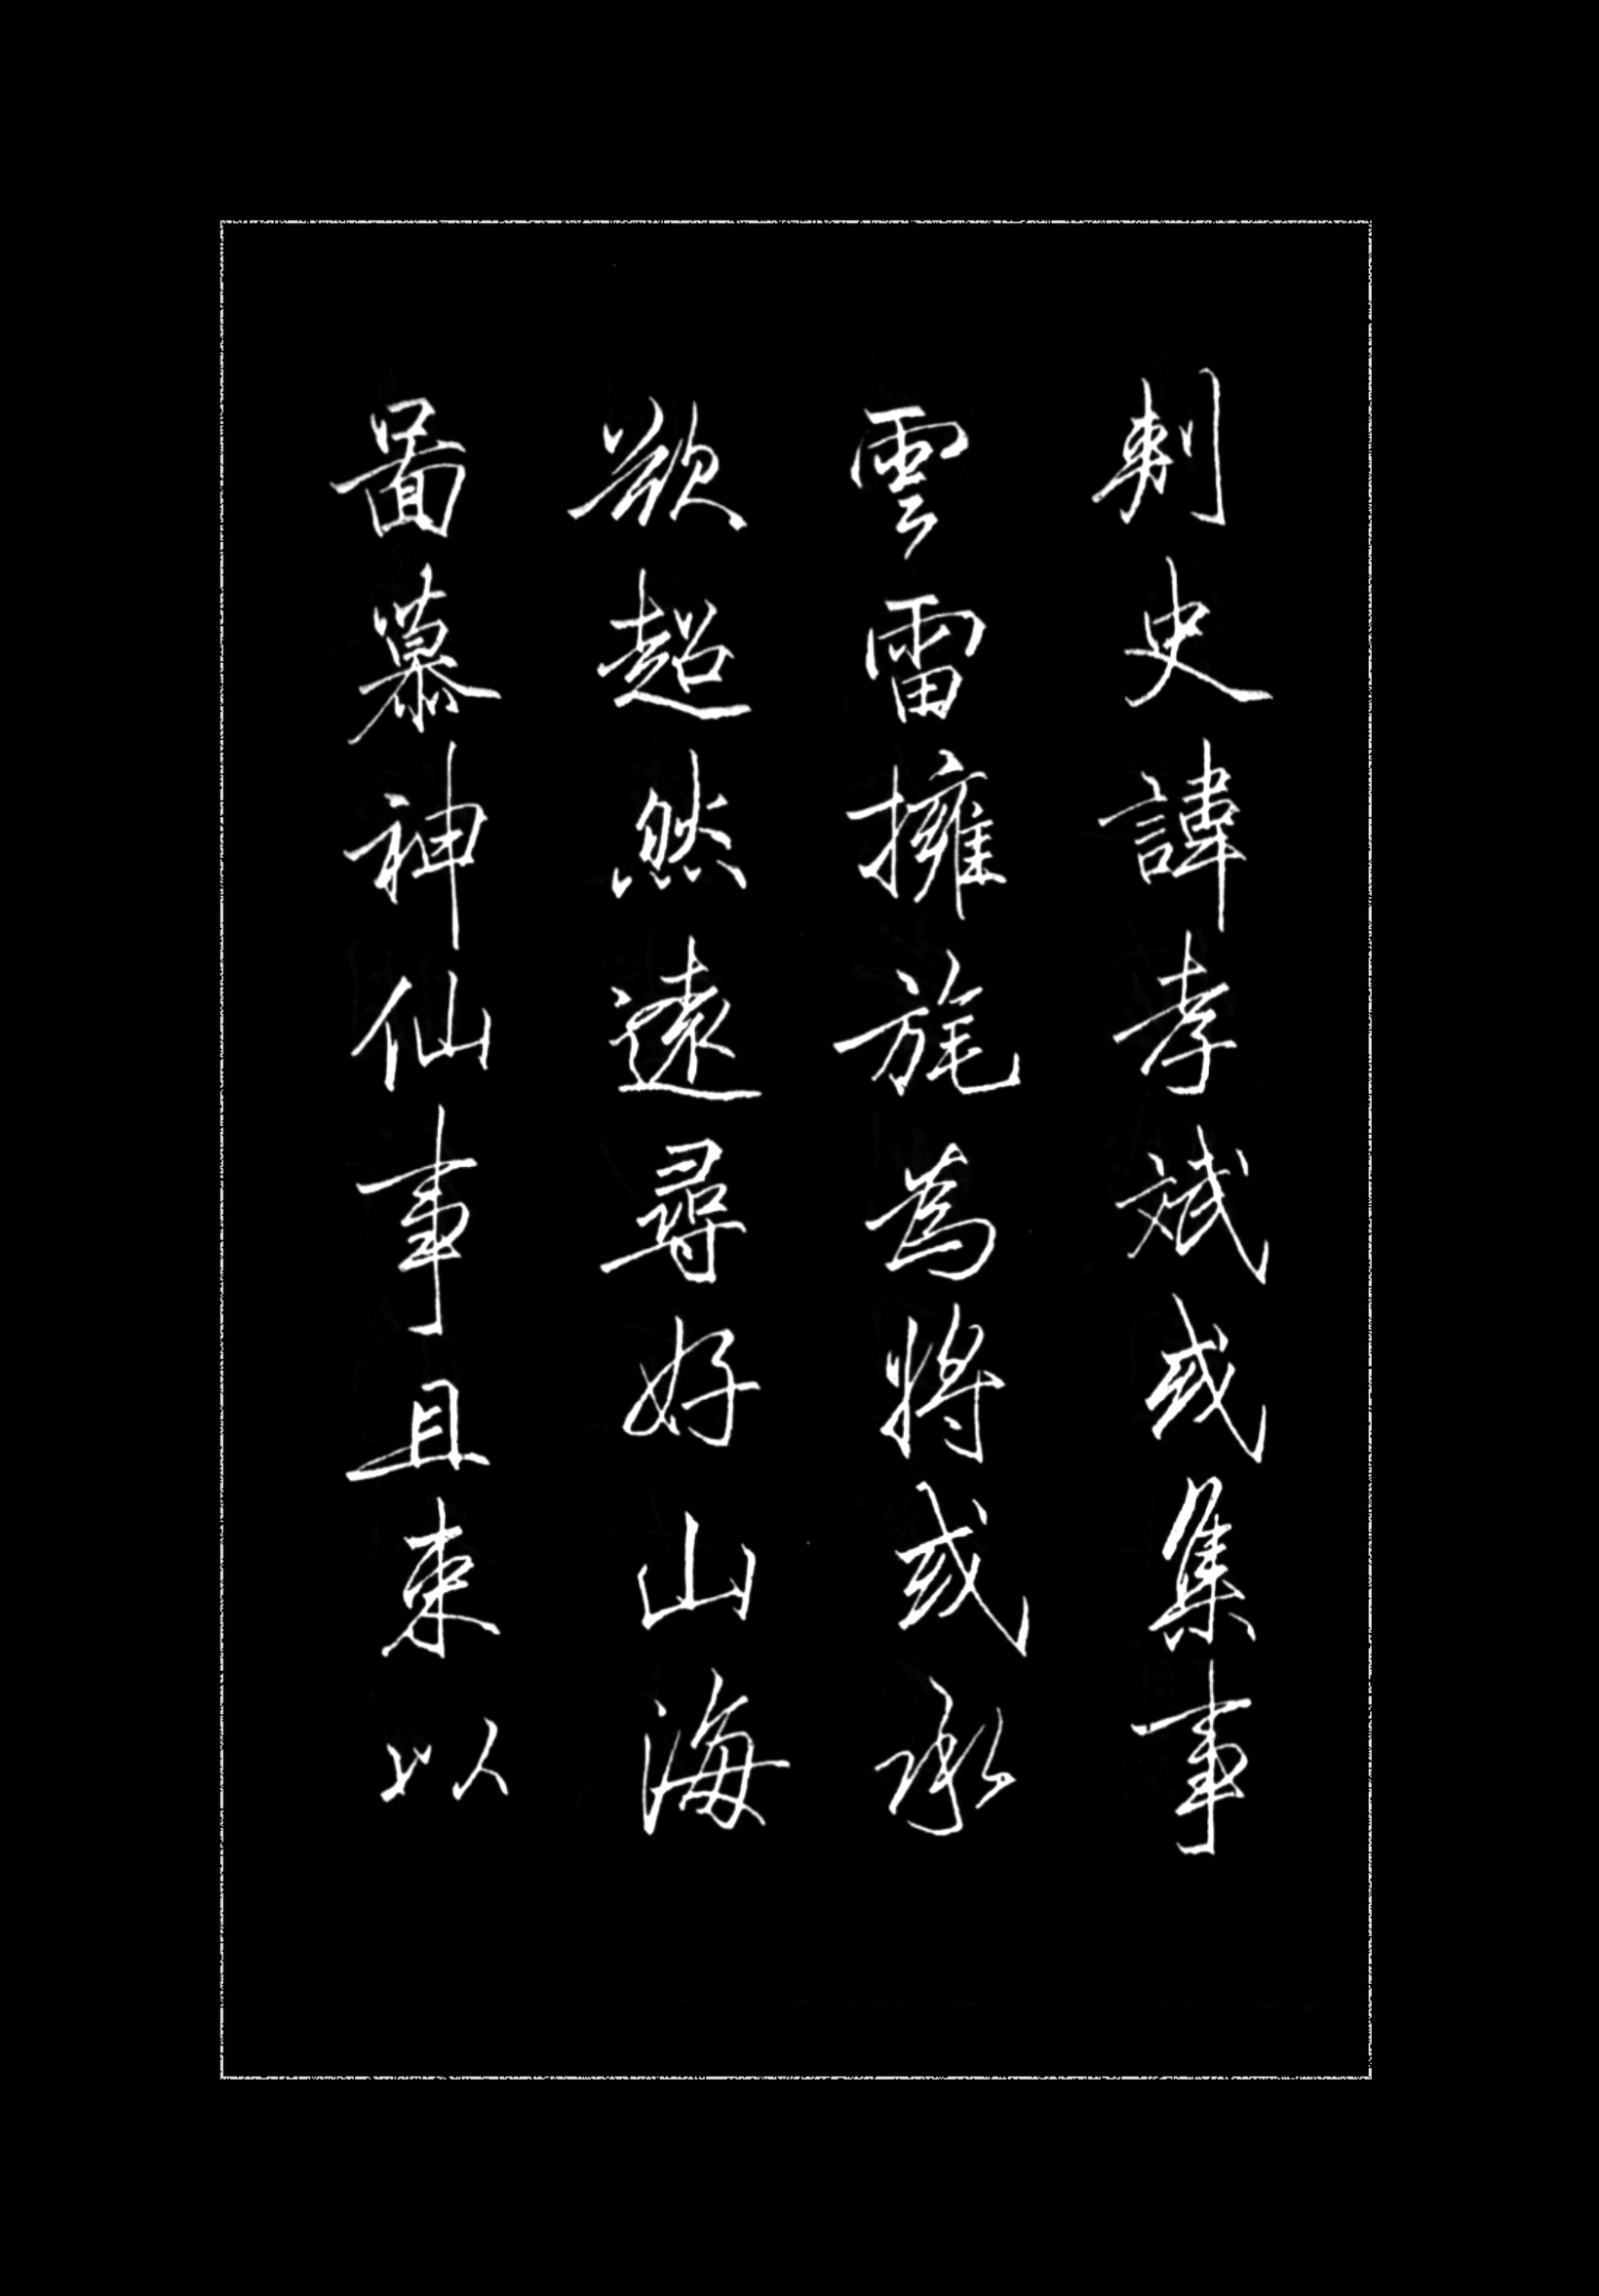 刺史諱孝斌或集事
雲雷擁旄為將或承
欲超然遠尋好山海
啚慕神仙事且束以